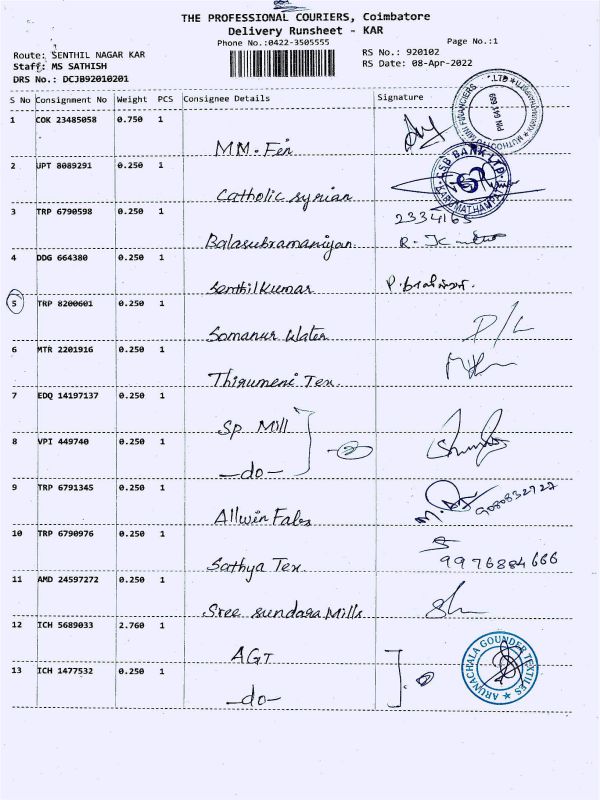 THE PROFESSIONAL COURIERS, Coimbatore
Delivery Runsheet - KAR
Phone No.:0422-3505555
Page No.:1
Route: SENTHIL NAGAR KAR
RS No.: 920102
Staff: MS SATHISH
RS Date: 08-Apr-2022
DRS No.: DCJB92010201
S No Consignment No Weight PCS Consignee Details Signature
1 COK 23485058 0.750 1
MM. Fin
MUTHOOTTU MINI FINANCIERS LTD.
PIN 641 659
2 UPT 8089291 0.250 1
Catholic syrian
CSB BANK LTD.
KARUMATHAMPATTI
3 TRP 6790598 0.250 1
Balasubramaniyan
2334165
4 DDG 664380 0.250 1
Senthilkumar
5 TRP 8200601 0.250 1
Somanur Water
D/L
6 MTR 2201916 0.250 1
Thirumeni Tex.
7 EDQ 14197137 0.250 1
Sp Mill
8 VPI 449740 0.250 1
—do—
2
9 TRP 6791345 0.250 1
Allwin Fabs
9080832727
10 TRP 6790976 0.250 1
Sathya Tex.
9976884666
11 AMD 24597272 0.250 1
Sree Sundara Mills
12 ICH 5689033 2.760 1
AGT
13 ICH 1477532 0.250 1
—do—
2
ARUNACHALA GOUNDER TEXTILES